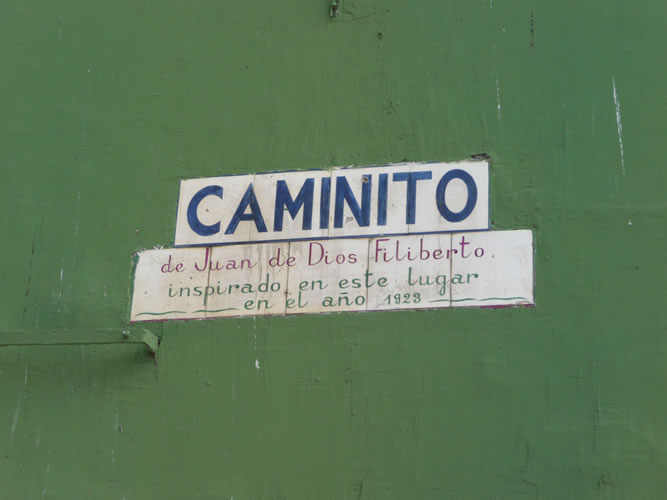 CAMINITO
de Juan de Dios Filiberto,
inspirado en este lugar
en el año 1923